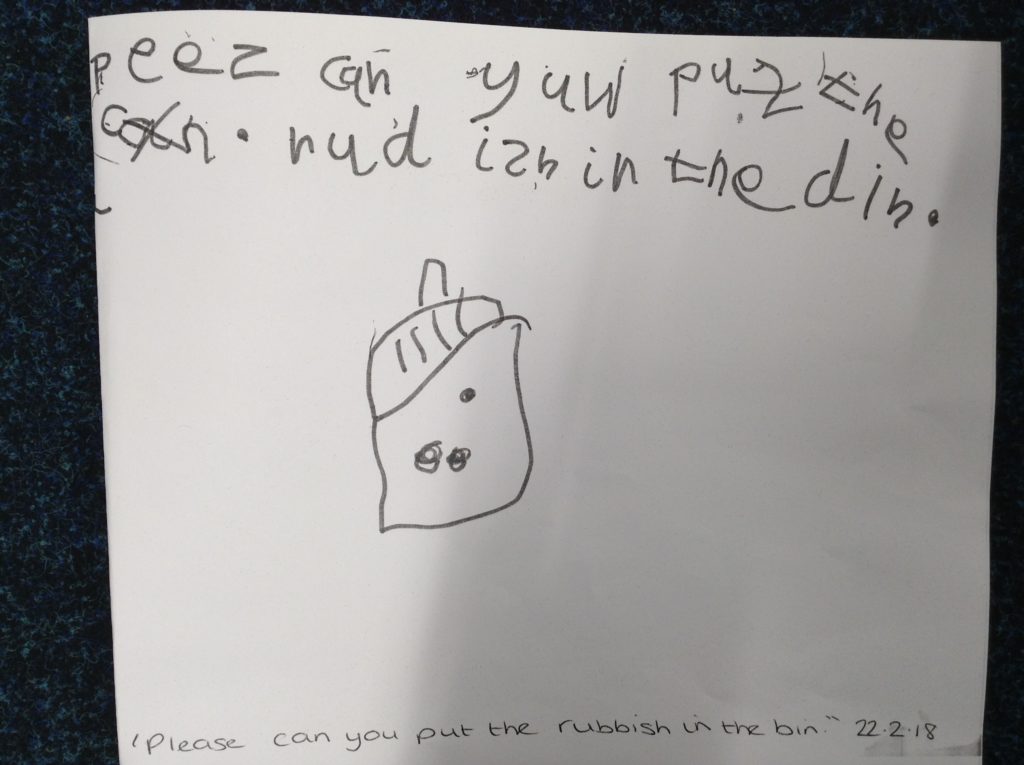 peez can yuw puz the
can. nud izh in the din.
"Please can you put the rubbish in the bin." 22.2.18